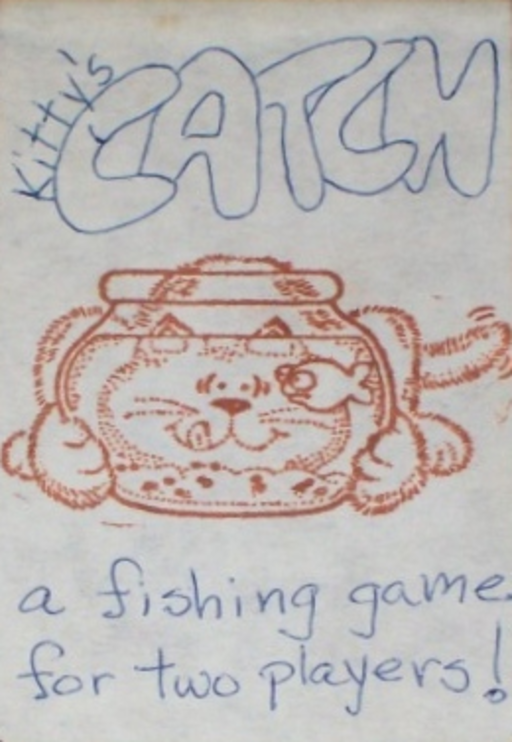 Kitty's
CATCH
a fishing game
for two players!